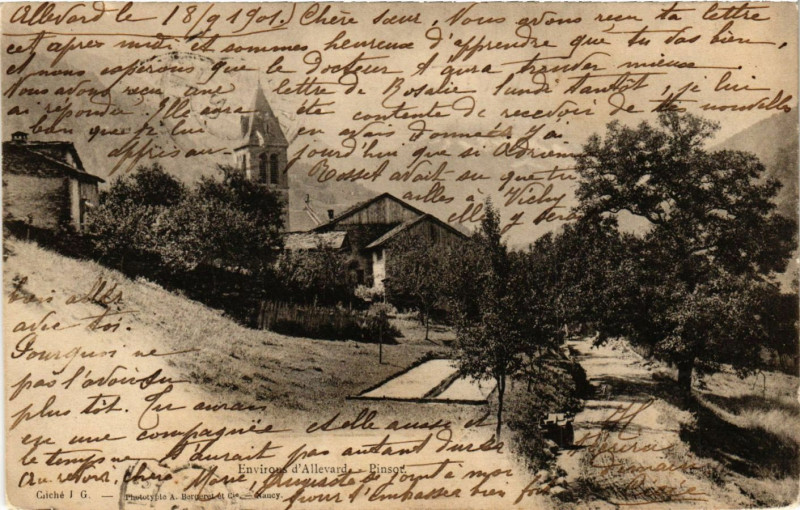 Allevard le 18/9 1901. Chère sœur, Nous avons reçu ta lettre
cet après midi et sommes heureux d'apprendre que tu vas bien,
et nous espérons que le Docteur t'aura trouvée mieux.
Nous avons reçu une lettre de Rosalie lundi tantôt, je lui
ai répondu. Elle aura été contente de recevoir de tes nouvelles
bien que je lui en avais données. J'ai
appris aujourd'hui que si Adrienne
Rosset avait su que tu
ailles à Vichy
elle y serait
bien allée
avec toi.
Pourquoi ne
pas l'avoir su
plus tôt. Tu aurais
eu une compagnie et elle aussi et
le temps ne t'aurait pas autant duré.
Au revoir, chère Marie, Auguste se joint à moi
pour t'embrasser bien fort
Environs d'Allevard - Pinsot.
Cliché I G. — Phototypie A. Bergeret et Cie. — Nancy.